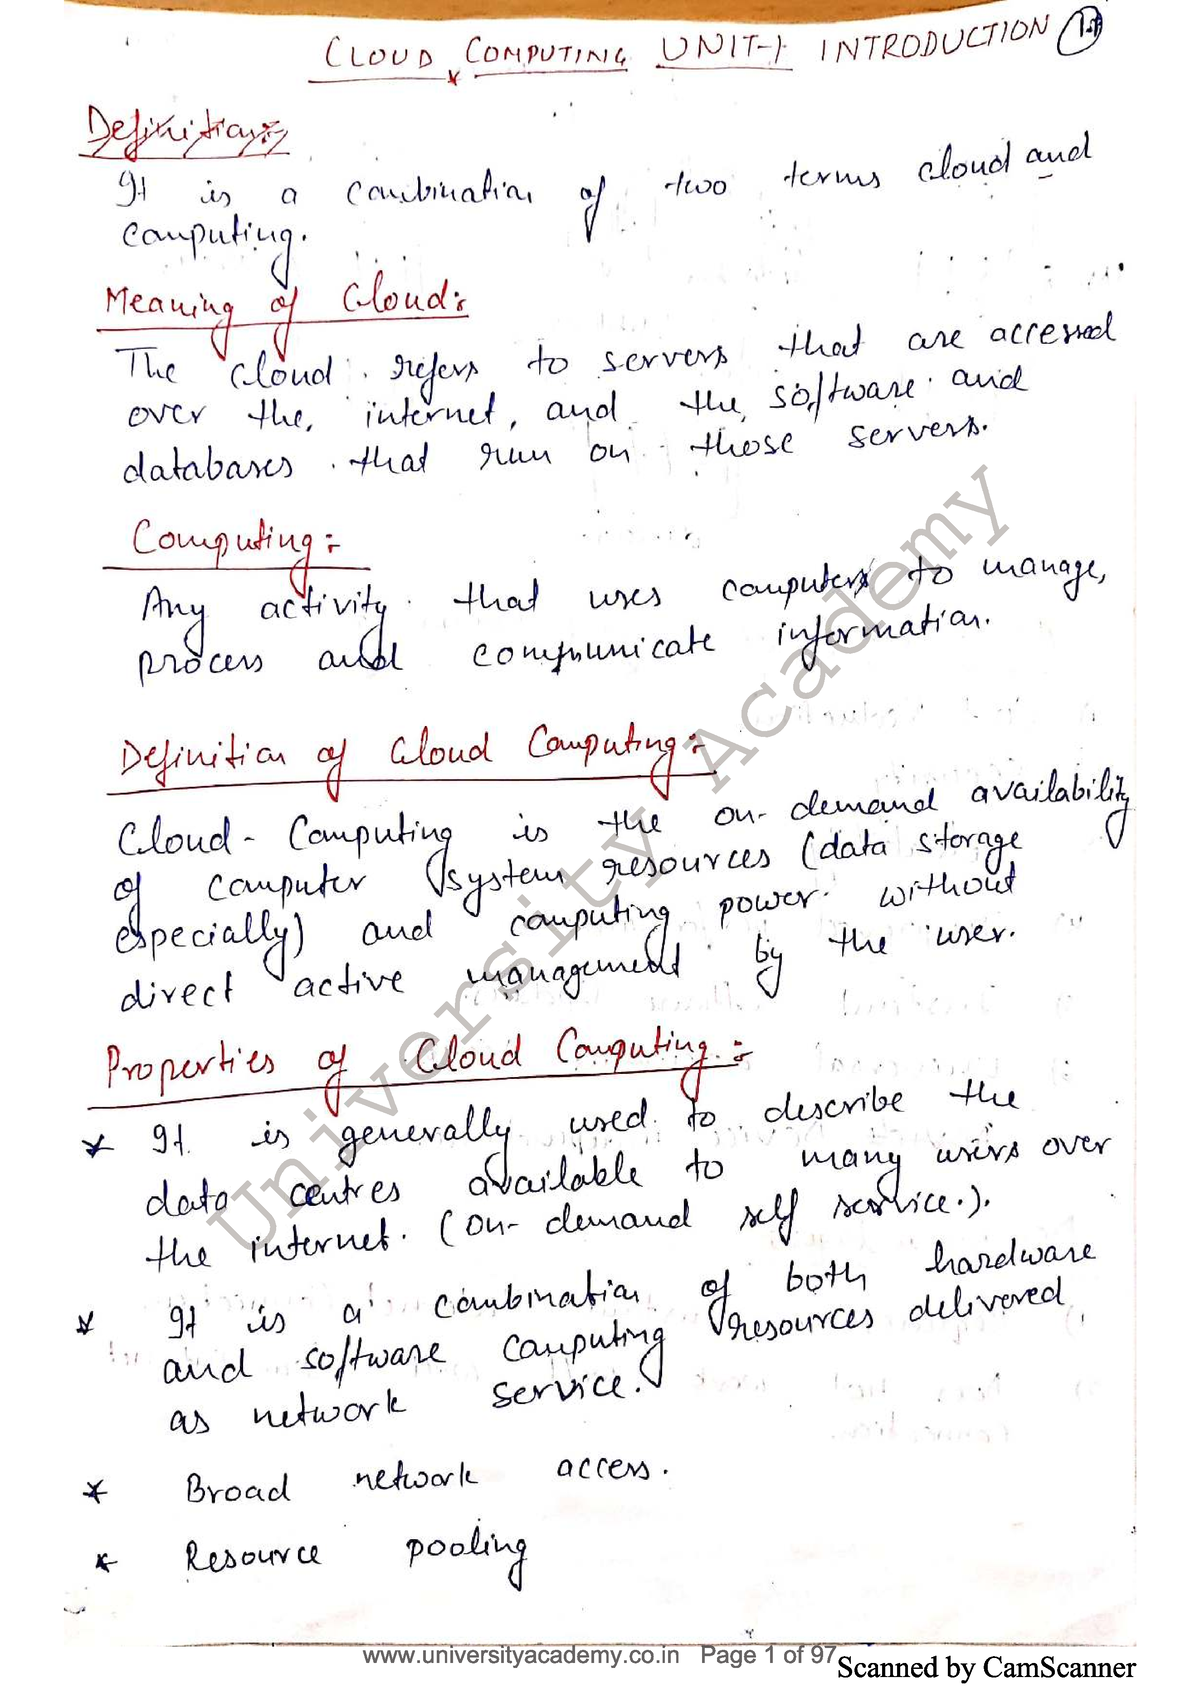 CLOUD COMPUTING UNIT-1 INTRODUCTION
Definition:-
It is a combination of two terms cloud and
computing.
Meaning of Cloud:-
The cloud refers to servers that are accessed
over the internet, and the software and
databases that run on those servers.
Computing:-
Any activity that uses computers to manage,
process and communicate information.
Definition of Cloud Computing:-
Cloud-Computing is the on-demand availability
of computer system resources (data storage
especially) and computing power without
direct active management by the user.
Properties of Cloud Computing:-
* It is generally used to describe the
data centres available to many users over
the internet. (on-demand self service.).
* It is a combination of both hardware
and software computing resources delivered
as network service.
* Broad network access.
* Resource pooling
University Academy
www.universityacademy.co.in Page 1 of 97
Scanned by CamScanner